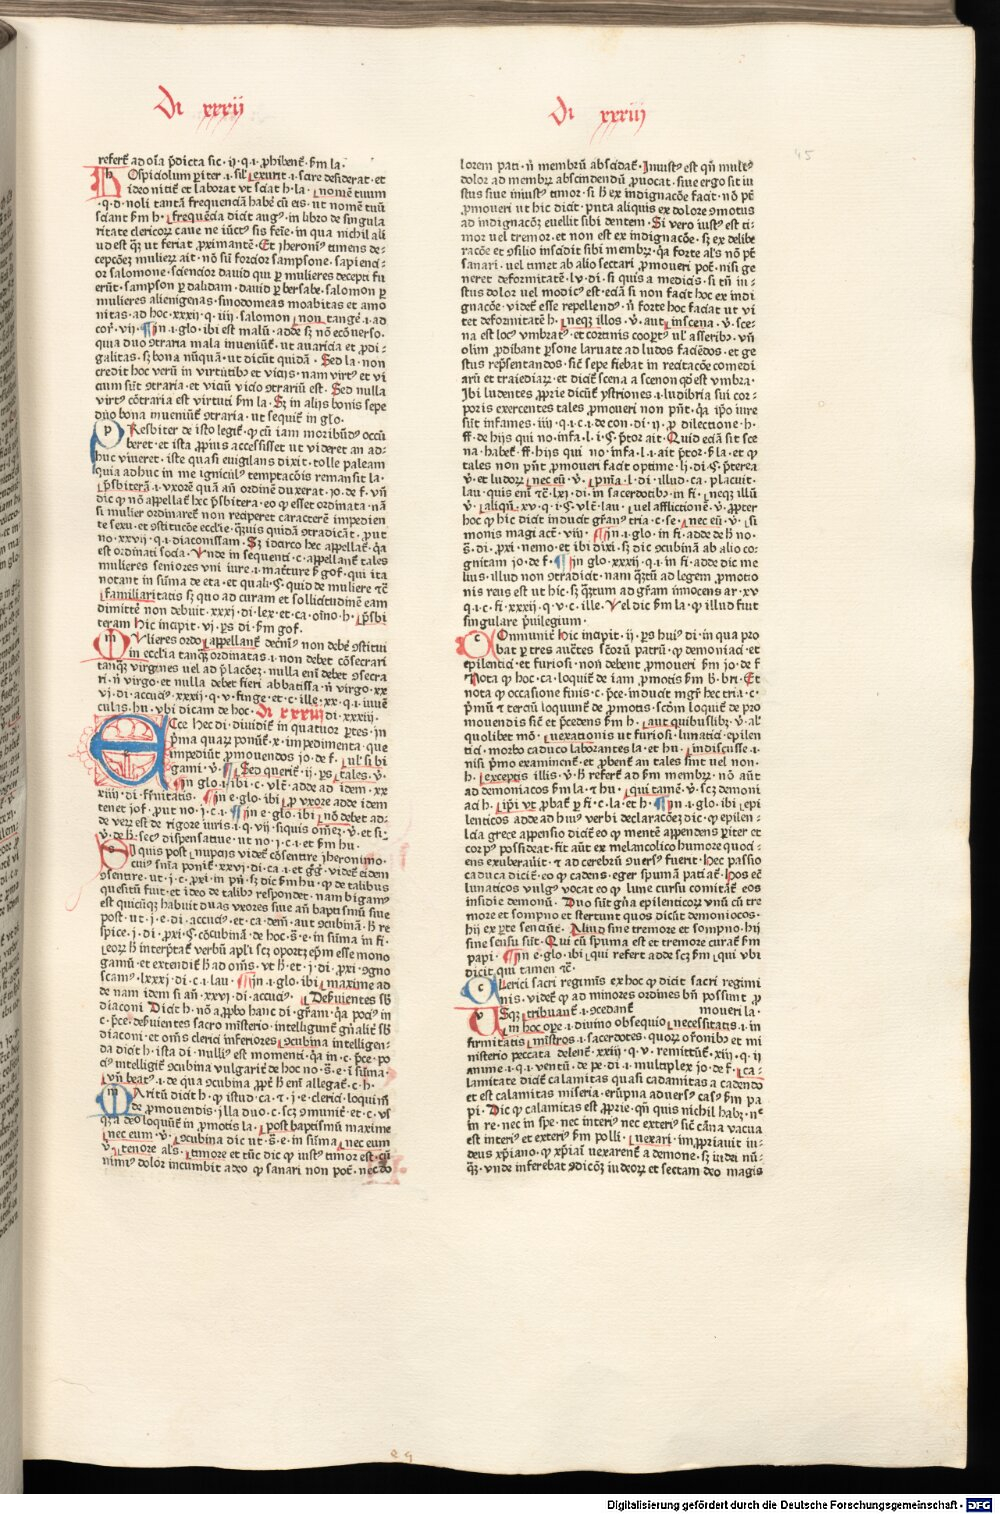 Di xxxij
Di xxxiij
45
referẜ ad oĩa p̄dicta sic · ij · q · i · ꝓhibenẜ · ẜm la ·
HOspiciolum p̱iter · i · sil̉ exurit · i · scire desiderat · et
ideo nitiẜ et laborat vt sciat h · la · nomē tuum
· q · d · noli tantā frequenciā habē cū eis · ut nomē tuū
sciant ẜm h · frequēcia dicit augꝰ · in libro de singula
ritate clericoꝝ caue ne iūctꝰ sis feīe · in qua nichil ali
ud est qꝫ ut feriat ꝓximantē · Et iheronīꝰ timens de-
cepcōeꝫ mulieꝝ ait · nō sū forcior sampsone · sapienci-
or salomone · sciencior dauid qui ꝑ mulieres decepti fu
erūt · sampson ꝑ dalidam · dauid ꝑ bersabe · salomon ꝑ
mulieres alienigenas · sinodomeas moabitas et amo
nitas · ad hoc · xxxij · q · iiij · salomon non tangē · i · ad
corͬ · vij · In · i · glo · ibi est malū · adde sꝫ nō ecōuerso ·
quia duo ꝯtraria mala inueniūẜ · ut auaricia et ꝓdi-
galitas · sꝫ bona nūquā · ut dicūt quidā · Sed la · non
credit hoc verū in virtutibꝰ et vicijs · nam virtꝰ et vi
cium sūt ꝯtraria · et viciū vicio ꝯtrariū est · Sed nulla
virtꝰ cōtraria est virtuti ẜm la · Sꝫ in alijs bonis sepe
duo bona inueniūẜ ꝯtraria · ut sequiẜ in glo ·
PResbiter de isto legiẜ · ꝙ cū iam moribūdꝰ occū
beret · et ista ꝓpius accessisset ut videret an ad-
huc viueret · iste quasi euigilans dixit · tolle paleam
quia adhuc in me igniculꝰ temptacōis remansit la ·
p̄sbiterā · i · vxorē quā an̄ ordinē duxerat · jo · de f · vn̄
dic ꝙ nō appellaẜ hec p̄sbitera · eo ꝙ esset ordinata · nā
si mulier ordinareẜ non reciperet caracterē impedien
te sexu · et ꝯstitucōe ecclīe · qꝫuis quidā ꝯtradicāt · ꝓut
no · xxvij · q · i · diaconissam · Sꝫ idcirco hec appellaẜ · qꝛ
est ordinati socia · Vnde in sequenti · c · appellanẜ tales
mulieres seniores vni iure · i · matẜure ẜm gof · qui ita
notant in sūma de eta · et quali · § · quid de muliere ⁊c̄
familiaritatis sꝫ quo ad curam et sollicitudinē eam
dimittē non debuit · xxxi · di · lex · et ca · oīno · h · p̄sbi
teram hic incipit · vj · ꝑs di · ẜm gof ·
MUlieres ordo appellanẜ decnīꝰ non debē ꝯstitui
in ecclīa tanqꝫ ordinatas · i · non debet cōsecrari
tanqꝫ virgines uel ad p̄lacōeꝫ · nulla eni debet ꝯsecra
ri · n̄ virgo · et nulla debet fieri abbatissa · n̄ virgo · xx
vj · di · accuciꝰ · xxxij · q · v · finge · et · c · ille · xx · q · i · iuuē
culas · hu · vbi dicam de hoc · Di xxxiij di · xxxiij ·
ECce Hec di · diuidiẜ in quatuor ꝑtes · jn
p̄ma quaꝝ ponūẜ · x · impedimenta · que
impediūt ꝓmouendos jo · de f · ul̉ si bi
gami · v̄ · Sed queriẜ · ij · ꝑs tales · v̄ ·
In glo · i · ibi · c · vlẜ · adde ad idem · xx
xiiij · di · fẜnitatis · In · e · glo · ibi ꝑ vxore adde idem
tenet jof · ꝓut no · j · c · i · In · e · glo · ibi nō debet ad-
de veꝝ est de rigore iuris · i · q · vij · siquis om̄eꝫ · v̄ · et si ·
v̄ · de h · secꝰ dispensatiue · ut no · j · c · i · et ẜm hu ·
SI quis post nupcijs videẜ cōsentire jheronimo ·
cuiꝰ sn̄ia poniẜ · xxvj · di · ca · i · et ḡḡ · videẜ eidem
ꝯsentire · ut · j · c · ꝓxi · in pn̄ · sꝫ dic ẜm hu · ꝙ de talibus
quesitū fuit · et ideo de talibꝰ respondet · nam bigamꝰ
est quicūqꝫ habuit duas vxores siue an̄ baptismū siue
post · ut · j · e · di · accuciꝰ · et ca · dem̄ · aut ꝯcubinā · h̄ re
spice · j · di · ꝓxi · § · cōcubinā · de hoc · s̄ · e · in sūma in fi ·
eoꝝ h̄ interp̄taẜ verbū apl̄i scꝫ oportꝫ ep̄m esse mono
gamū · et extendiẜ h̄ ad om̄s · vt h · et · j · di · ꝓxi · ꝯgno
scamꝰ · lxxxj · di · c · i · lau · In · i · glo · ibi maxime ad
de nam idem si an̄ · xxvj · di · accuciꝰ · Deẜuientes sb̄
diaconi Dicit h · nō a ꝓbo hanc di · gͬam · qꝛ pociꝰ in
c · p̄ce · deẜuientes sacro mīsterio · intelligunẜ gn̄aliẜ sb̄
diaconi · et om̄s clerici inferiores ꝯcubina intelligen-
da dicit h · ista di · nulliꝰ est momenti · qꝛ in · c · p̄ce · po
ciꝰ intelligiẜ ꝯcubina vulgarit̉ de hoc no · s̄ · e · ī sūma ·
vn̄ beatꝰ · i · de qua ꝯcubina ꝓpē h̄ eni allegaẜ · c · h ·
MAritū dicit h · ꝙ istud · ca · ⁊ · j · e · clerici · loquiẜ
de ꝓmouendis · illa duo · c · scꝫ ꝯmuniẜ · et · c · vs
qꝫ · a deo loquūẜ in ꝓmotis la · post baptismū maxime
nec eum · v̄ · ꝯcubina dic ut · s̄ · e · in sūma · nec eum
v̄ · tenore al̉s · timore et tūc dic ꝙ iustꝰ timor est · cū
nimiꝰ dolor incumbit adeo ꝙ sanari non potē · nec do
lorem pati · n̄ membrū abscidaẜ · Iniustꝰ est qn̄ muleꝰ
dolor ad membꝝ abscindendū ꝓuocat · siue ergo sit iu
stus siue iniustꝰ timor · si h̄ ex indignacōe facit · nō pē
ꝓmoueri ut hic dicit · puta aliquis ex dolore ꝯmotus
ad indignacōꝫ euellit sibi dentem · Si vero iustꝰ est ti-
mor uel tremor · et non est ex indignacōe · sꝫ ex delibe
racōe et ꝯsilio inscidit sibi membꝝ · qꝛ forte al̉s nō pē
sanari · vel timet ab alio sectari · ꝓmoueri potē · nisi ge
neret deformitatē · lv · di · si quis a medicis · si tn̄ in-
stus dolor vel modicꝰ est · eciā si non facit hoc ex indi
gnacōe · videẜ esse repellendꝰ · n̄ forte hoc faciat ut vi
tet deformitatē h · neqꝫ illos · v̄ · aut inscena · v̄ · sce-
na est locꝰ vmbratꝰ · et cortinis cooptꝰ ul̉ asseribꝰ · vn̄
olim ꝓdibant ꝑsone laruate ad ludos faciēdos · et ge
stus rep̄sentandos · sicẜ sepe fiebat in recitacōe comedi
arū et traiediaꝝ · et diciẜ scena a scenon qd̓ est vmbra ·
Ibi ludentes ꝓprie dicūẜ ystriones · i · ludibria sui cor-
poris exercentes tales ꝓmoueri non pn̄t · qꝛ ip̄o iure
sūt infames · iiij · q · i · c · i · de con · di · ij · ꝑ dilectione · h ·
ff · de hijs qui no · infa · l · i · § · p̄tor ait · Quid eciā sit sce
na · habeẜ · ff · hijs qui · no · infa · l · i · ait p̄tor · ẜm la · et ꝙ
tales non pn̄t ꝓmoueri facit optime · lj · di · § · p̄terea
v̄ · et ludoꝝ nec eū · v̄ · p̄nīa · l · di · illud · ca · placuit ·
lau · quis eni ⁊c̄ · lxj · di · in sacerdotibꝰ · in fi · neqꝫ illū
v̄ · aliqn̄ · xv · q · i · § · vlẜ · lau · uel afflictione · v̄ · ꝓpter
hoc ꝙ hic dicit inducit gͬanꝰ tria · c · se · nec eū · v̄ · si
monis magi actē · viij · In · i · glo · in fi · adde de h̄ no ·
s̄ · di · ꝓxi · nemo · et ibi dixi · sꝫ dic ꝯcubinā ab alio co-
gnitam jo · de f · In glo · xxxij · q · i · in fi · adde dic me
lius · illud non ꝯtradicit · nam qꝫtū ad legem ꝓmotio
nis reus est ut hic · sꝫ qꝫtum ad gͬam innocens ar · xv
q · i · c · fi · xxxij · q · v · c · ille · Vel dic ẜm la · ꝙ illud fuit
singulare p̄uilegium ·
COmmuniẜ Hic incipit · ij · ꝑs huiꝰ di · in qua pro
bat ꝑ tres auctes sctōrū patrū · ꝙ demoniaci · et
epilentici · et furiosi · non debent ꝓmoueri ẜm jo · de f
Nota ꝙ hoc · ca · loquiẜ de iam ꝓmotis ẜm h · bri · Et
nota ꝙ occasione finis · c · p̄ce · inducit mgͬ hec tria · c ·
p̄mū ⁊ terciū loquunẜ de ꝓmotis · scdm loquiẜ de pro
mouendis sicẜ et p̄cedens ẜm h · aut quibuslibꝫ · v̄ · al̉
quolibet mō · vexationis ut furiosi · lunatici · epilen
tici · morbo caduco laborantes la · et hu · indiscusse · i ·
nisi p̄mo examinenẜ · et ꝓbenẜ an tales sint uel non ·
h · exceptis illis · v̄ · h̄ referẜ ad ẜm membꝝ · nō aūt
ad demoniacos ẜm la · ⁊ hu · qui tamē · v̄ · scꝫ demoni
aci h · ip̄i vt ꝓbaẜ ꝑ fi · c · la · et h · In · i · glo · ibi epi
lenticos adde ad huiꝰ verbi declaracōeꝫ dic · ꝙ epilen-
cia grece appensio diciẜ eo ꝙ mentē appendens pariter et
corꝑꝰ possideat · fit aūt ex melancolico humore quoci-
ens exuberauit · ⁊ ad cerebrū ꝯuersꝰ fuerit · Hec passio
caduca diciẜ · eo ꝙ cadens · eger spumā paciaẜ · Hos eni
lunaticos vulgꝰ vocat eo ꝙ lune cursu comitāẜ eos
insidie demonū · Duo sūt gn̄a epilenticoꝝ vnū cū tre
more et sompno et stertunt quos dicūt demoniocos ·
hij ex ꝑte senciūt · Aliud sine tremore et sompno · hij
sine sensu sūt · Qui cū spuma est et tremore curaẜ ẜm
papi · In · e · glo · ibi qui refert adde scꝫ ẜm qui vbi
dicit qui tamen ⁊c̄ ·
CLerici sacri regimīs ex hoc ꝙ dicit sacri regimi
nis · videẜ ꝙ ad minores ordines bn̄ possint ꝓ
VSqꝫ tribuanẜ · i · ꝯcedanẜ moueri la ·
in hoc opē · i · diuino obsequio necessitatis · i · in
firmitatis mīstros · i · sacerdotes · quoꝝ or̄onibꝰ et mi
nisterio peccata delenẜ · xxiij · q · v · remittūẜ · xiij · q · ij
anime · i · q · i · ventū · de pe · di · i · multiplex jo · de f · ca-
lamitate diciẜ calamitas quasi cadamitas a cadendo
et est calamitas miseria · erūpna aduersꝰ casꝰ ẜm pa
pi · Dic ꝙ calamitas est ꝓprie · qn̄ quis nichil habꝫ · nͨ
in re · nec in spe · nec interiꝰ nec exteriꝰ sicẜ cāna vacua
est interiꝰ et exteriꝰ ẜm polli · vexari · im ꝓpriauit iu-
deus xp̄iano · ꝙ xp̄iani vexarenẜ a demone · sꝫ iudei nū-
qꝫ · vnde inferebat ꝯdicōeꝫ iudeoꝝ et sectam deo magis
e 9
Digitalisierung gefördert durch die Deutsche Forschungsgemeinschaft · DFG